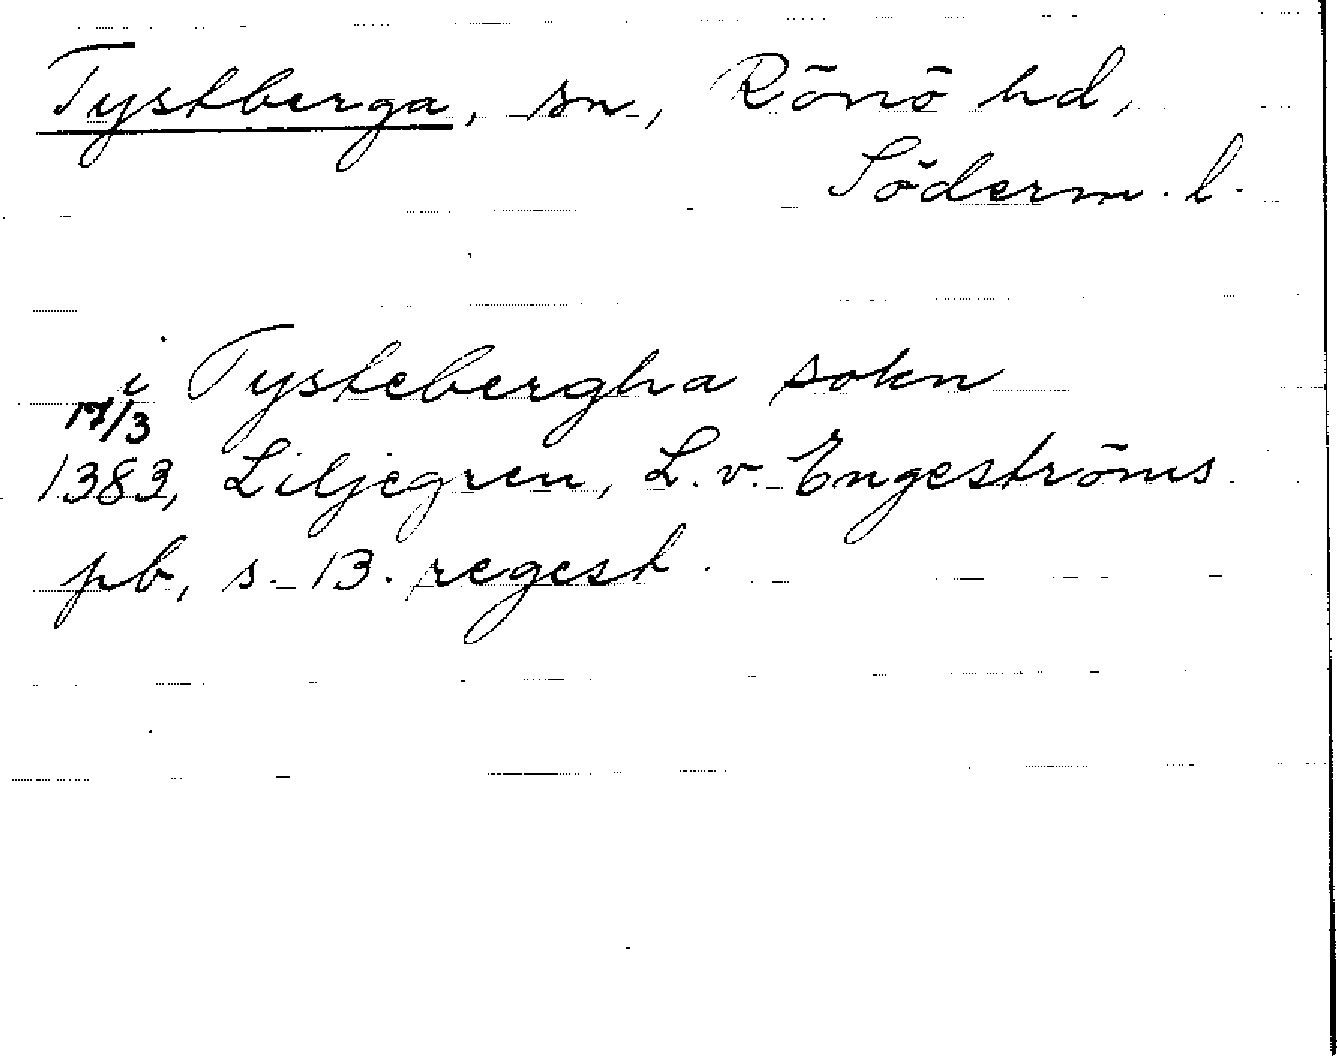 Tystberga, sn, Rönö hd,
Söderm. l.
i Tystebergha sokn
17/3
1383, Liljegren, L. v. Engeströms
pb, s. 13. regest.